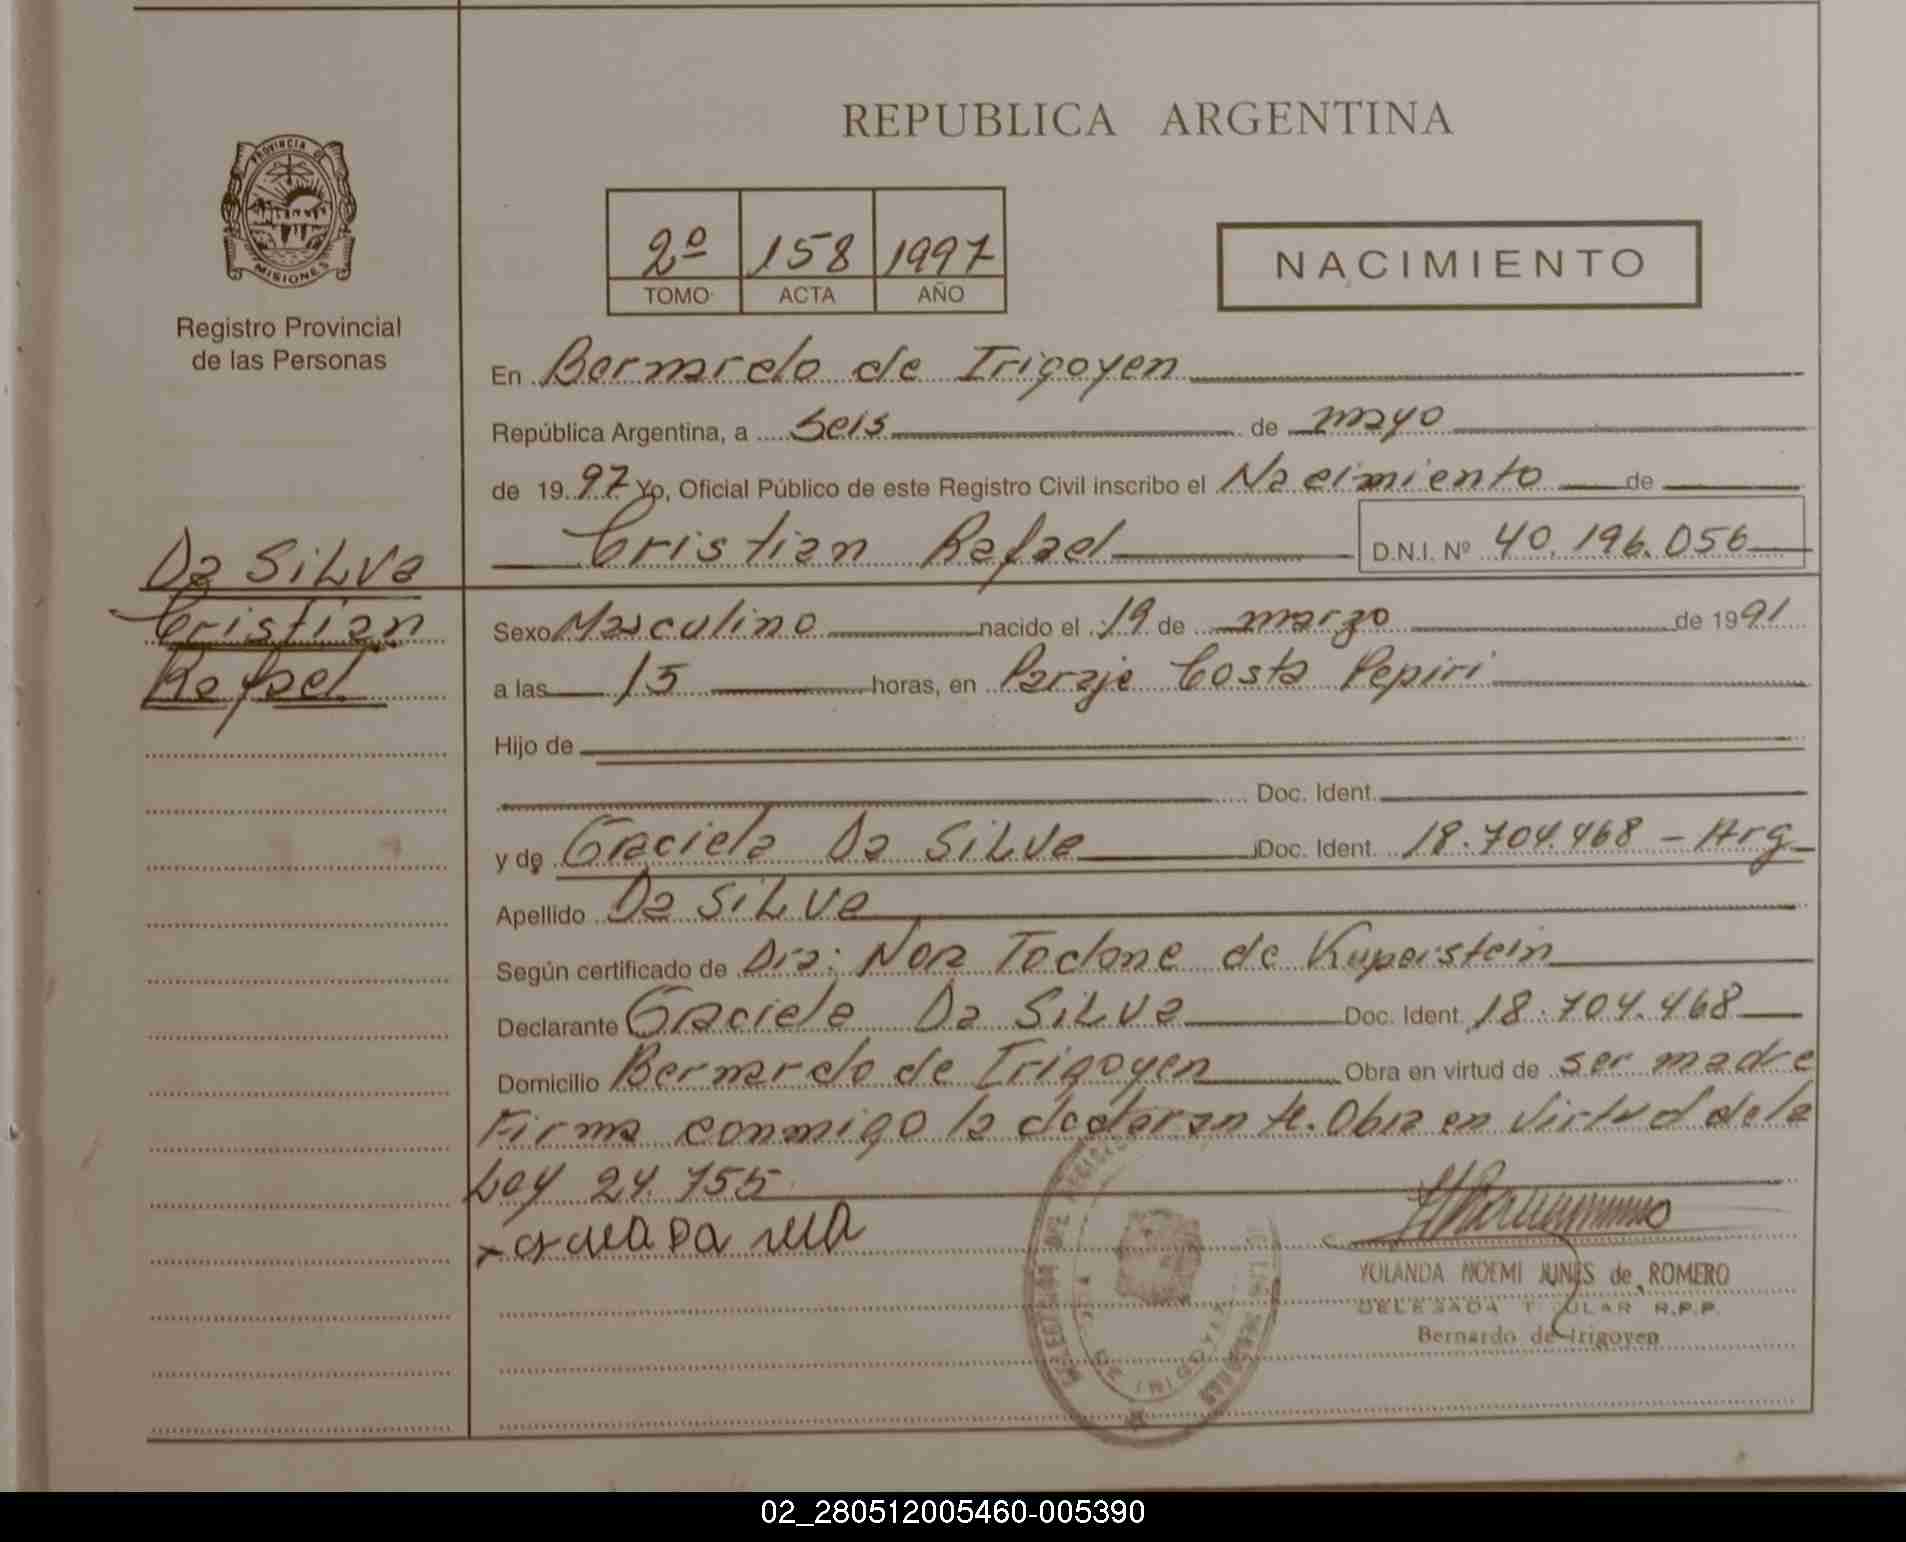 REPUBLICA ARGENTINA
PROVINCIA DE
MISIONES
Registro Provincial
de las Personas
2º 158 1997
TOMO ACTA AÑO
NACIMIENTO
En Bernardo de Irigoyen
República Argentina, a seis de mayo
de 1997 Yo, Oficial Público de este Registro Civil inscribo el Nacimiento de
Cristian Rafael D.N.I. Nº 40.196.056
Da SiLva
Cristian
Rafael
Sexo Masculino nacido el 19 de marzo de 1991
a las 15 horas, en Paraje Costa Pepiri
Hijo de
Doc. Ident.
y de Graciela Da SiLva Doc. Ident. 18.704.468 - Arg
Apellido Da SiLva
Según certificado de Dra: Nora de Kuperstein
Declarante Graciela Da SiLva Doc. Ident. 18.704.468
Domicilio Bernardo de Irigoyen Obra en virtud de ser madre
Firma conmigo la declarante. Obra en virtud de la
Ley 24.755
YOLANDA NOEMI JUNES de ROMERO
DELEGADA TITULAR R.P.P.
Bernardo de Irigoyen
DE IRIGOYEN
02_280512005460-005390